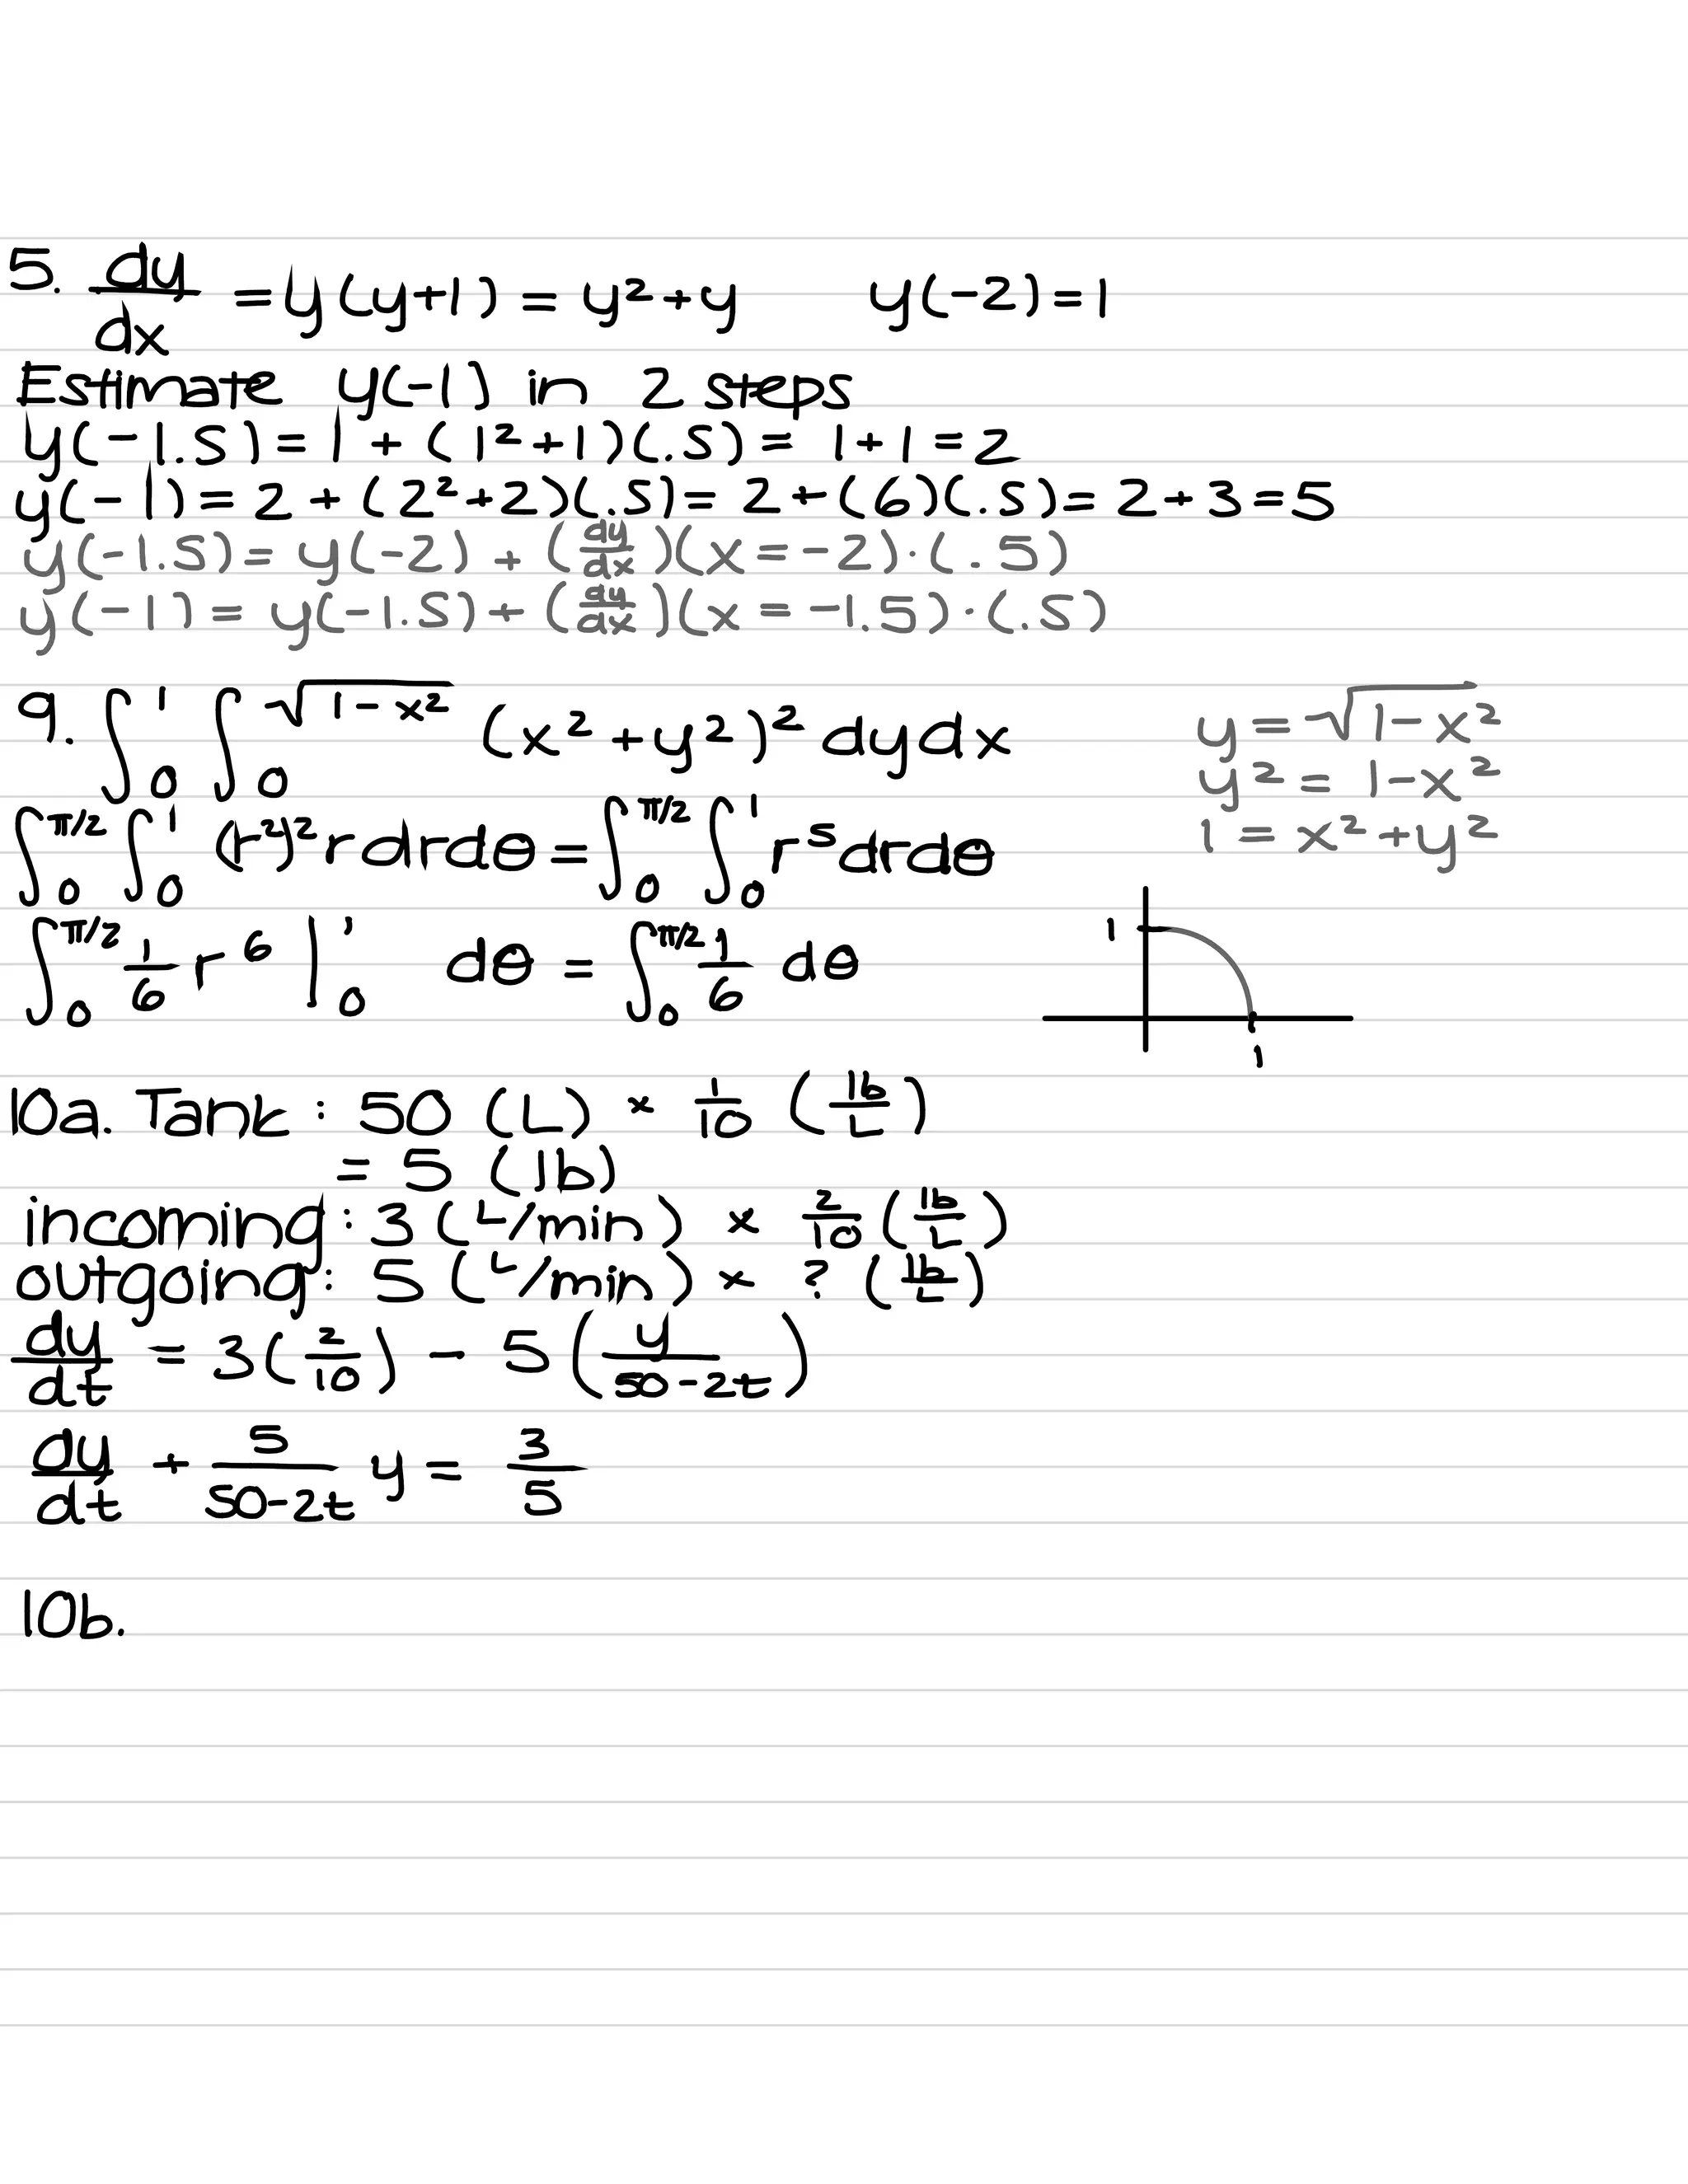 5. dy/dx = y(y+1) = y²+y y(-2)=1
Estimate y(-1) in 2 steps
y(-1.5)= 1 + (1²+1)(.5)= 1+1 =2
y(-1)= 2 + (2²+2)(.5)= 2+(6)(.5)= 2+3=5
y(-1.5)= y(-2) + (dy/dx)(x=-2)·(.5)
y(-1) = y(-1.5)+ (dy/dx)(x = -1.5)·(.5)
9. ∫₀¹ ∫₀^√(1-x²) (x²+y²)² dydx
y = √(1-x²)
y² = 1-x²
1 = x²+y²
∫₀^π/2 ∫₀¹ (r²)² r drdθ = ∫₀^π/2 ∫₀¹ r⁵drdθ
∫₀^π/2 1/6 r⁶ |₀¹ dθ = ∫₀^π/2 1/6 dθ
1
1
10a. Tank: 50 (L) × 1/10 (lb/L)
= 5 (lb)
incoming: 3 (L/min) × 2/10 (lb/L)
outgoing: 5 (L/min) × ? (lb/L)
dy/dt = 3(2/10) - 5 (y/50-2t)
dy/dt + 5/50-2t y = 3/5
10b.